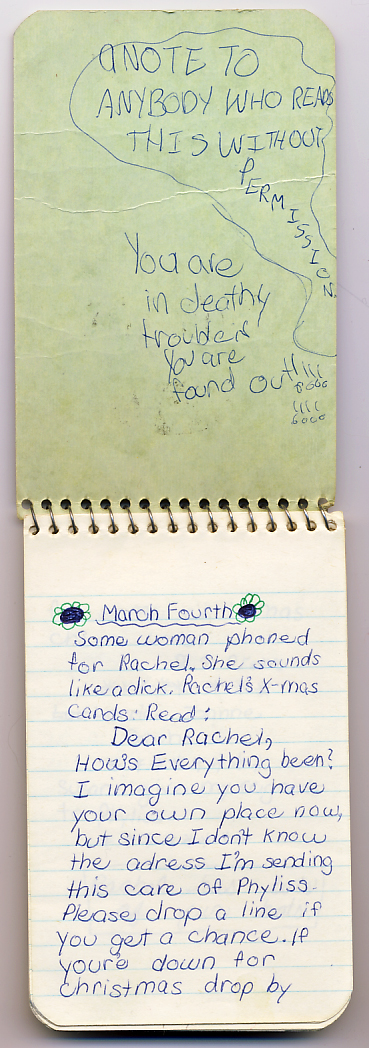 a NOTE TO
ANYBODY WHO READS
THIS WITHOUT
PERMISSION.
You are
in deathy
trouble if
You are
found out!!!!
March Fourth
Some woman phoned
for Rachel. She sounds
like a dick. Rachel's X-mas
Cards: Read:
Dear Rachel,
How's Everything been?
I imagine you have
your own place now,
but since I don't know
the adress I'm sending
this care of Phyliss.
Please drop a line if
you get a chance. If
you're down for
Christmas drop by